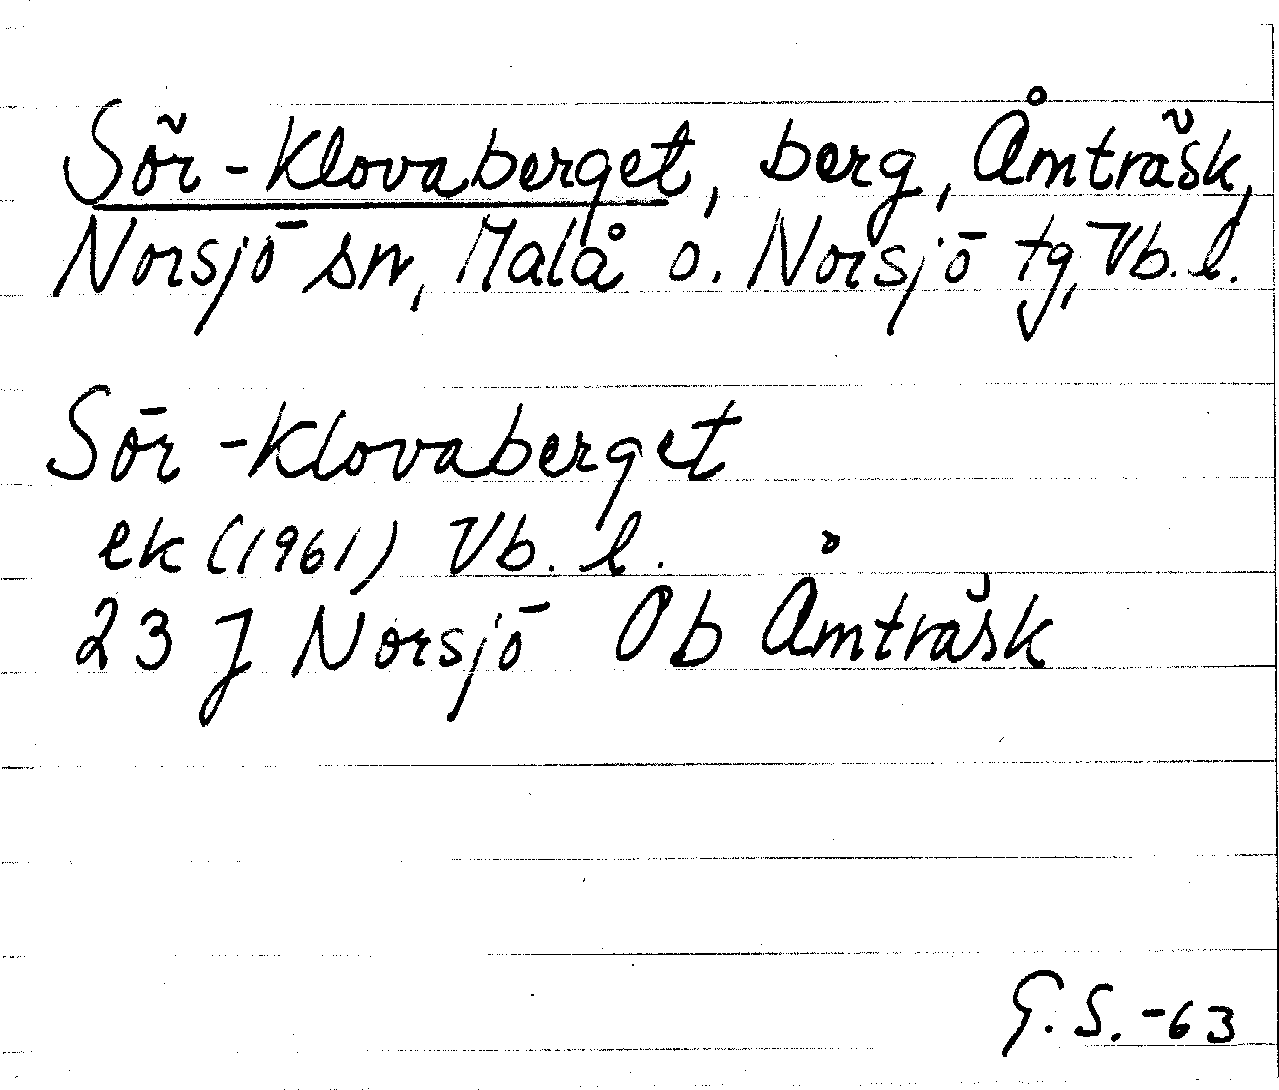 Sör-Klovaberget, berg, Åmträsk,
Norsjö sn, Malå o. Norsjö tg, Vb. l.
Sör-Klovaberget
ek (1961) Vb. l.
23 J Norsjö Ob Åmträsk
G. S. -63